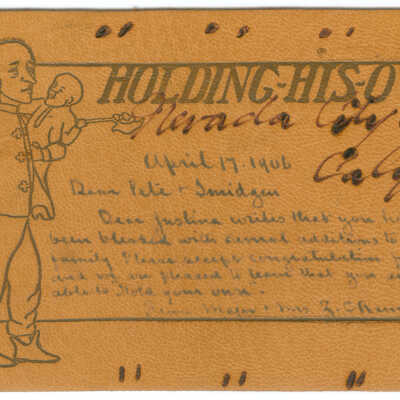 HOLDING-HIS-O
Nevada City
Cal
April 17, 1906
Dear Pete + Smidgen
Dear Justina writes that you ha
been blessed with additions to
family. Please accept congratulation
and we are pleased to learn that you
able to Hold your own.
Mr Major + Mrs Z. C